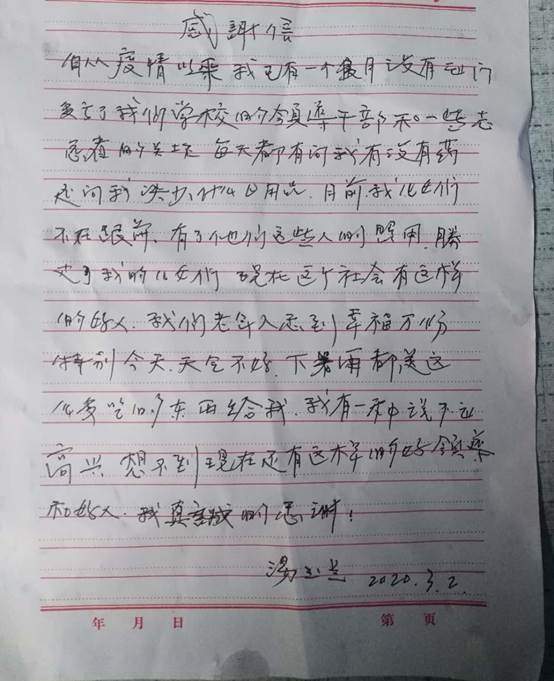 感謝信
自从疫情以来我已有一个多月没有出门
多亏了我们学校的领导干部和一些志
愿者的关心 每天都有问我有没有药
还问我缺少什么日用品.目前我儿女们
不在跟前.有了他们这些人的照用.勝
过了我的儿女们 现在这个社会有这样
的好人.我们老年人感到幸福万份
特别今天.天气不好.下暴雨都送这
么多吃的东西给我.我有一种说不出
高兴 想不到现在还有这样的好领导
和好人.我真诚的感谢!
湯 2020.3.2.
年 月 日
第 页